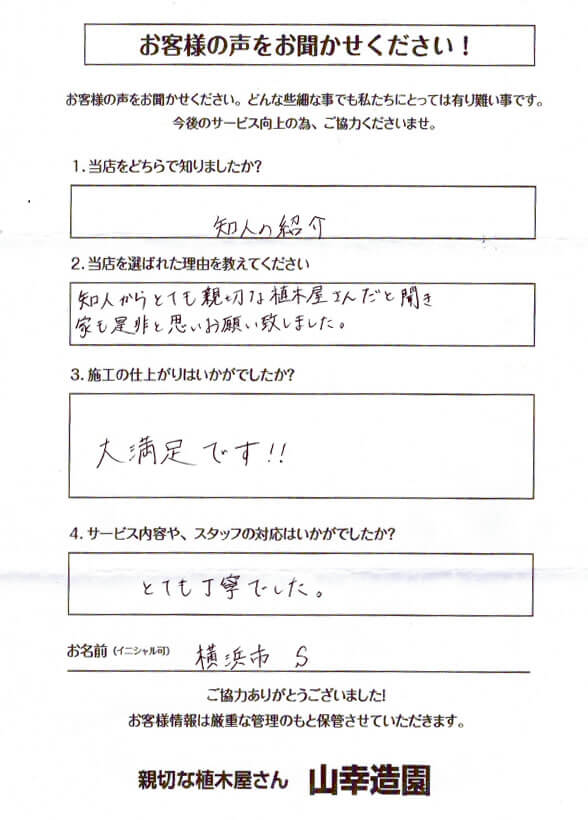 お客様の声をお聞かせください！
お客様の声をお聞かせください。どんな些細な事でも私たちにとっては有り難い事です。
今後のサービス向上の為、ご協力くださいませ。
1.当店をどちらで知りましたか?
知人の紹介
2.当店を選ばれた理由を教えてください
知人からとても親切な植木屋さんだと聞き
家も是非と思いお願い致しました。
3.施工の仕上がりはいかがでしたか?
大満足です!!
4.サービス内容や、スタッフの対応はいかがでしたか?
とても丁寧でした。
お名前（イニシャル可） 横浜市 S
ご協力ありがとうございました!
お客様情報は厳重な管理のもと保管させていただきます。
親切な植木屋さん 山幸造園